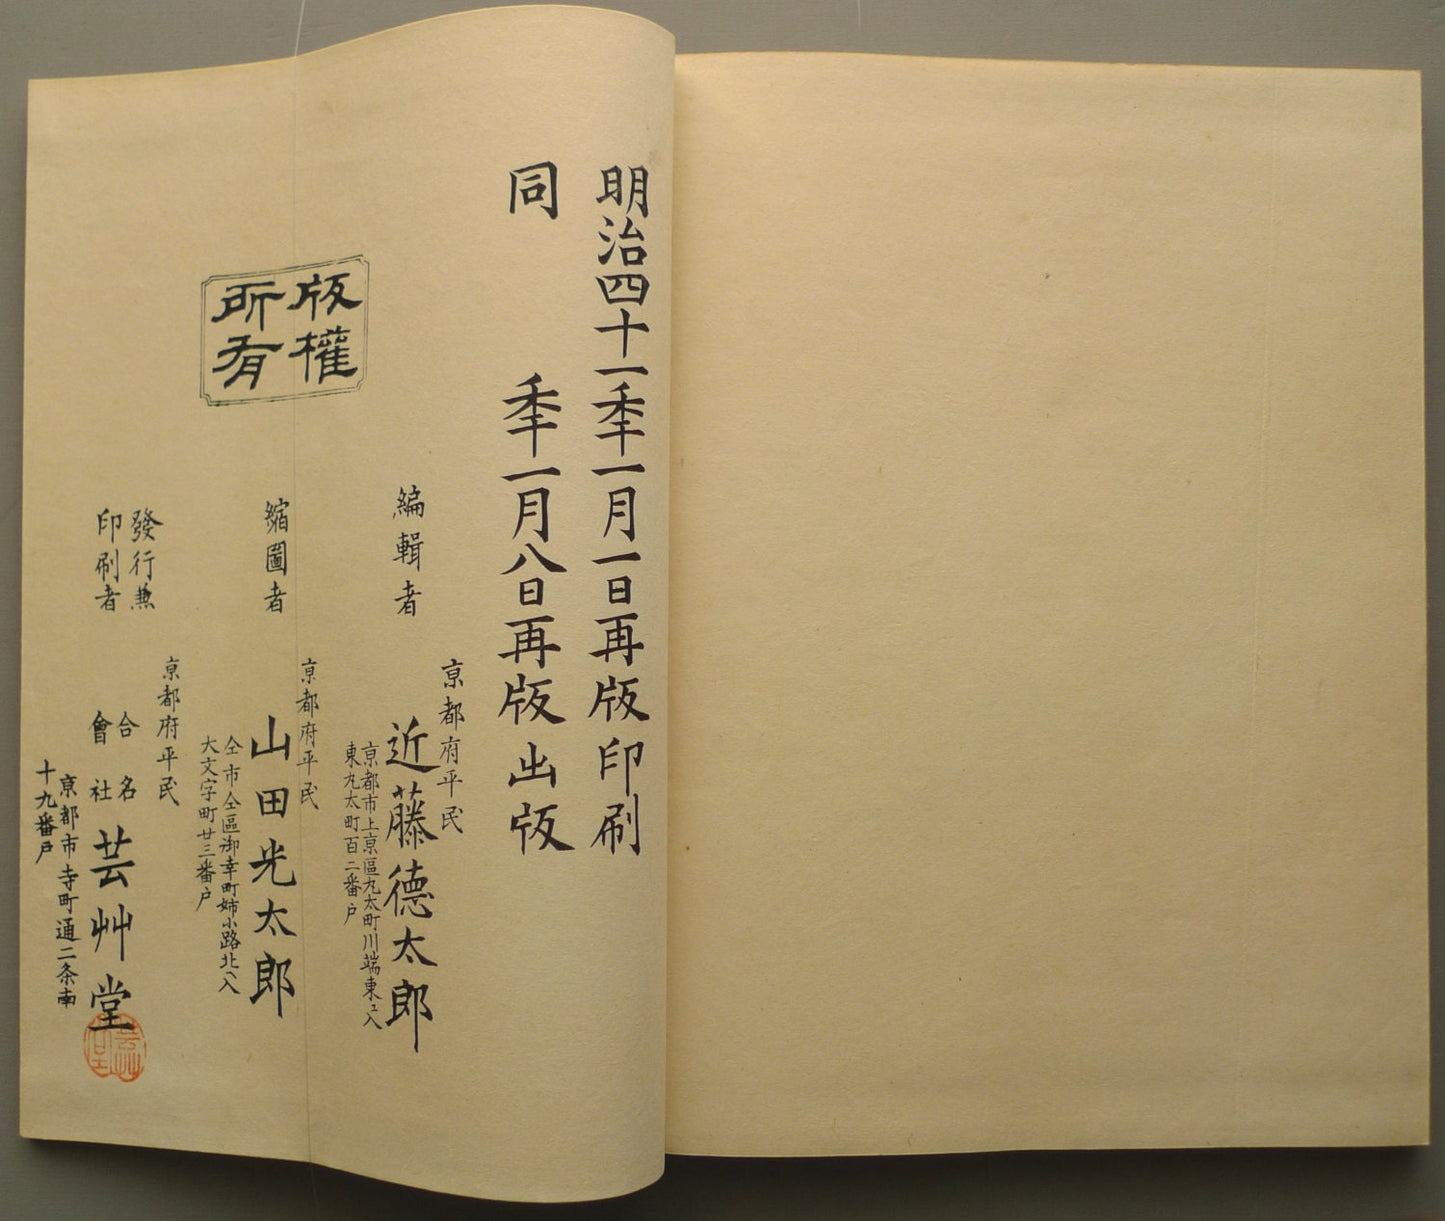 明治四十一秊一月一日再版印刷
同　秊一月八日再版出版
版權
所有
編輯者
京都府平民
近藤德太郎
京都市上京區丸太町川端東ヱ入
東丸太町百二番戶
縮圖者
京都府平民
山田光太郎
仝市仝區御幸町姉小路北ヘ入
大文字町廿三番戶
發行兼
印刷者
京都府平民
合名
會社
芸艸堂
京都市寺町通二条南
十九番戶
芸艸堂